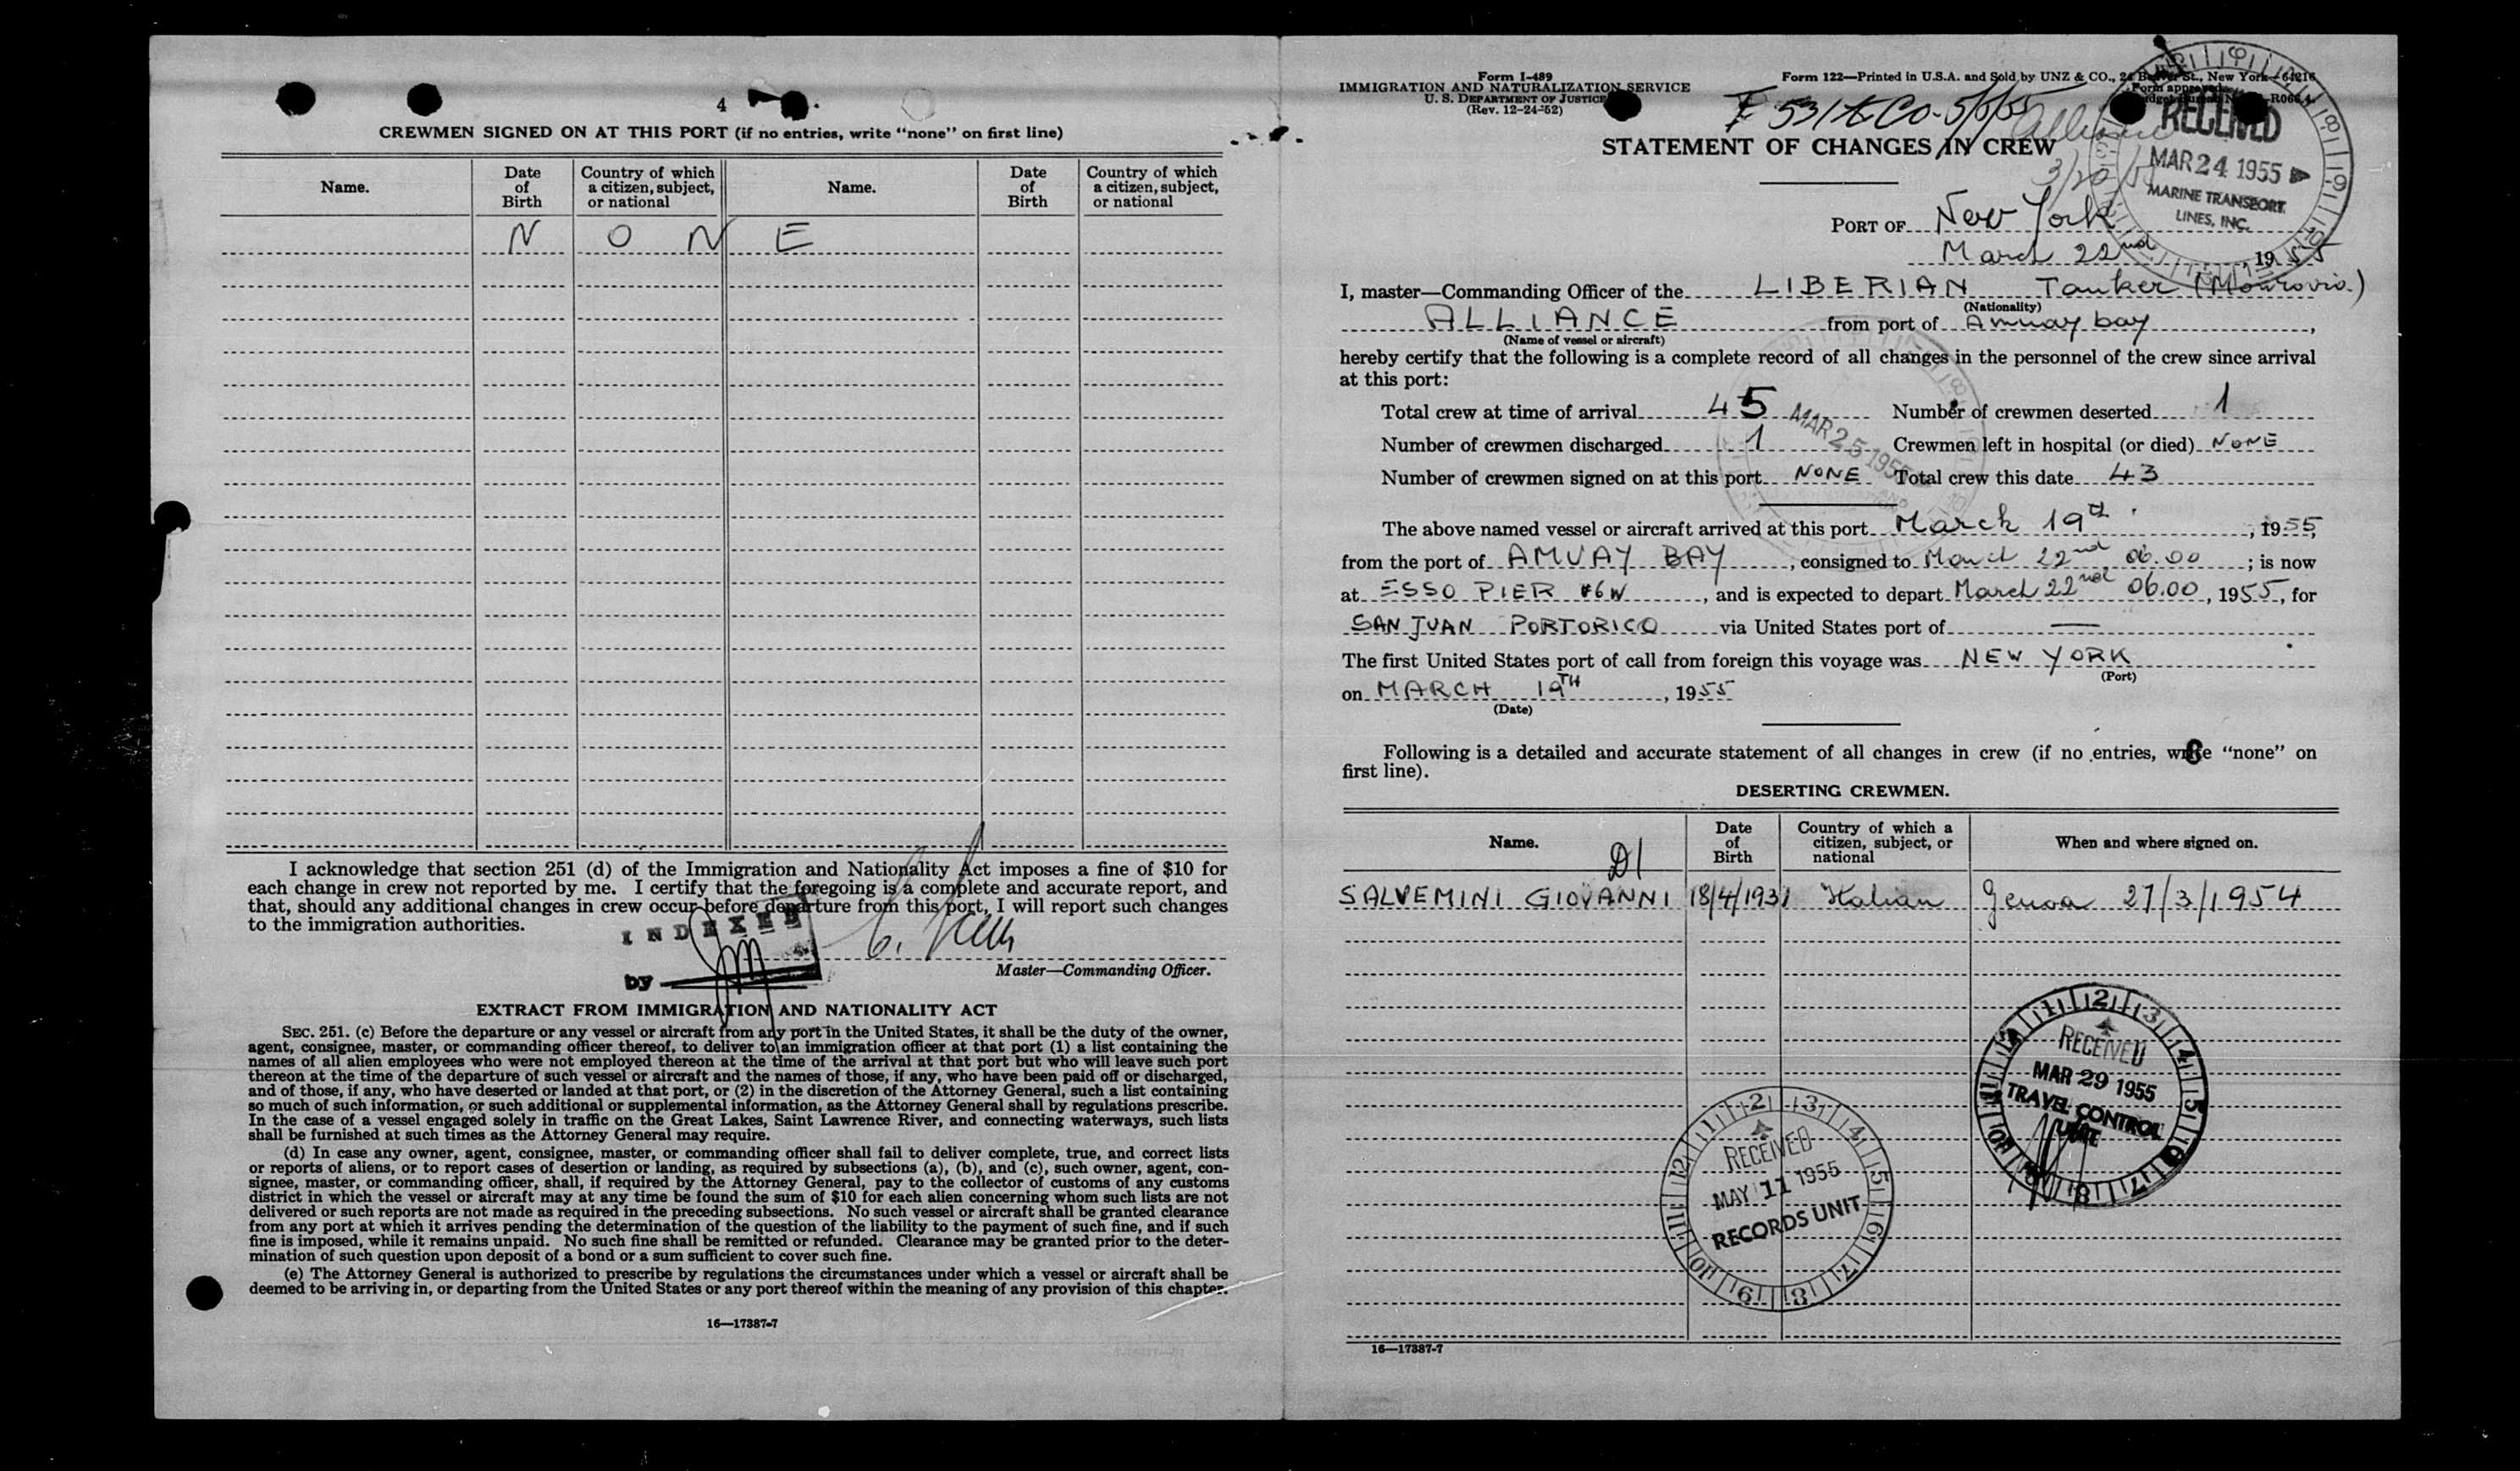 4
CREWMEN SIGNED ON AT THIS PORT (if no entries, write “none” on first line)
Name.
Date of Birth
Country of which a citizen, subject, or national
Name.
Date of Birth
Country of which a citizen, subject, or national
N O N E
I acknowledge that section 251 (d) of the Immigration and Nationality Act imposes a fine of $10 for
each change in crew not reported by me. I certify that the foregoing is a complete and accurate report, and
that, should any additional changes in crew occur before departure from this port, I will report such changes
to the immigration authorities.
INDEXED
by
Master—Commanding Officer.
EXTRACT FROM IMMIGRATION AND NATIONALITY ACT
SEC. 251. (c) Before the departure or any vessel or aircraft from any port in the United States, it shall be the duty of the owner,
agent, consignee, master, or commanding officer thereof, to deliver to an immigration officer at that port (1) a list containing the
names of all alien employees who were not employed thereon at the time of the arrival at that port but who will leave such port
thereon at the time of the departure of such vessel or aircraft and the names of those, if any, who have been paid off or discharged,
and of those, if any, who have deserted or landed at that port, or (2) in the discretion of the Attorney General, such a list containing
so much of such information, or such additional or supplemental information, as the Attorney General shall by regulations prescribe.
In the case of a vessel engaged solely in traffic on the Great Lakes, Saint Lawrence River, and connecting waterways, such lists
shall be furnished at such times as the Attorney General may require.
(d) In case any owner, agent, consignee, master, or commanding officer shall fail to deliver complete, true, and correct lists
or reports of aliens, or to report cases of desertion or landing, as required by subsections (a), (b), and (c), such owner, agent, con-
signee, master, or commanding officer, shall, if required by the Attorney General, pay to the collector of customs of any customs
district in which the vessel or aircraft may at any time be found the sum of $10 for each alien concerning whom such lists are not
delivered or such reports are not made as required in the preceding subsections. No such vessel or aircraft shall be granted clearance
from any port at which it arrives pending the determination of the question of the liability to the payment of such fine, and if such
fine is imposed, while it remains unpaid. No such fine shall be remitted or refunded. Clearance may be granted prior to the deter-
mination of such question upon deposit of a bond or a sum sufficient to cover such fine.
(e) The Attorney General is authorized to prescribe by regulations the circumstances under which a vessel or aircraft shall be
deemed to be arriving in, or departing from the United States or any port thereof within the meaning of any provision of this chapter.
16—17387-7
Form I-489
IMMIGRATION AND NATURALIZATION SERVICE
U. S. DEPARTMENT OF JUSTICE
(Rev. 12-24-52)
Form 122—Printed in U.S.A. and Sold by UNZ & CO., 24 St., New York—64216
Form approved
Alliance
3/20/55
STATEMENT OF CHANGES IN CREW
RECEIVED
MAR 24 1955
MARINE TRANSPORT
LINES, INC.
PORT OF New York
March 22nd, 1955
I, master—Commanding Officer of the LIBERIAN Tanker (Monrovia)
(Nationality)
ALLIANCE from port of Amuay bay,
(Name of vessel or aircraft)
hereby certify that the following is a complete record of all changes in the personnel of the crew since arrival
at this port:
Total crew at time of arrival 45 Number of crewmen deserted 1
Number of crewmen discharged 1 Crewmen left in hospital (or died) NONE
MAR 25 1955
Number of crewmen signed on at this port NONE Total crew this date 43
The above named vessel or aircraft arrived at this port March 19th, 1955,
from the port of AMUAY BAY, consigned to March 22nd 06.00; is now
at ESSO PIER #6W, and is expected to depart March 22nd 06.00, 1955, for
SAN JUAN PORTORICO via United States port of —
The first United States port of call from foreign this voyage was NEW YORK
(Port)
on MARCH 19TH, 1955
(Date)
Following is a detailed and accurate statement of all changes in crew (if no entries, write “none” on
first line).
DESERTING CREWMEN.
Name.
Date of Birth
Country of which a citizen, subject, or national
When and where signed on.
D1
SALVEMINI GIOVANNI 18/4/1931 Italian Genova 27/3/1954
RECEIVED
MAR 29 1955
TRAVEL CONTROL
UNIT
RECEIVED
MAY 11 1955
RECORDS UNIT
16—17387-7